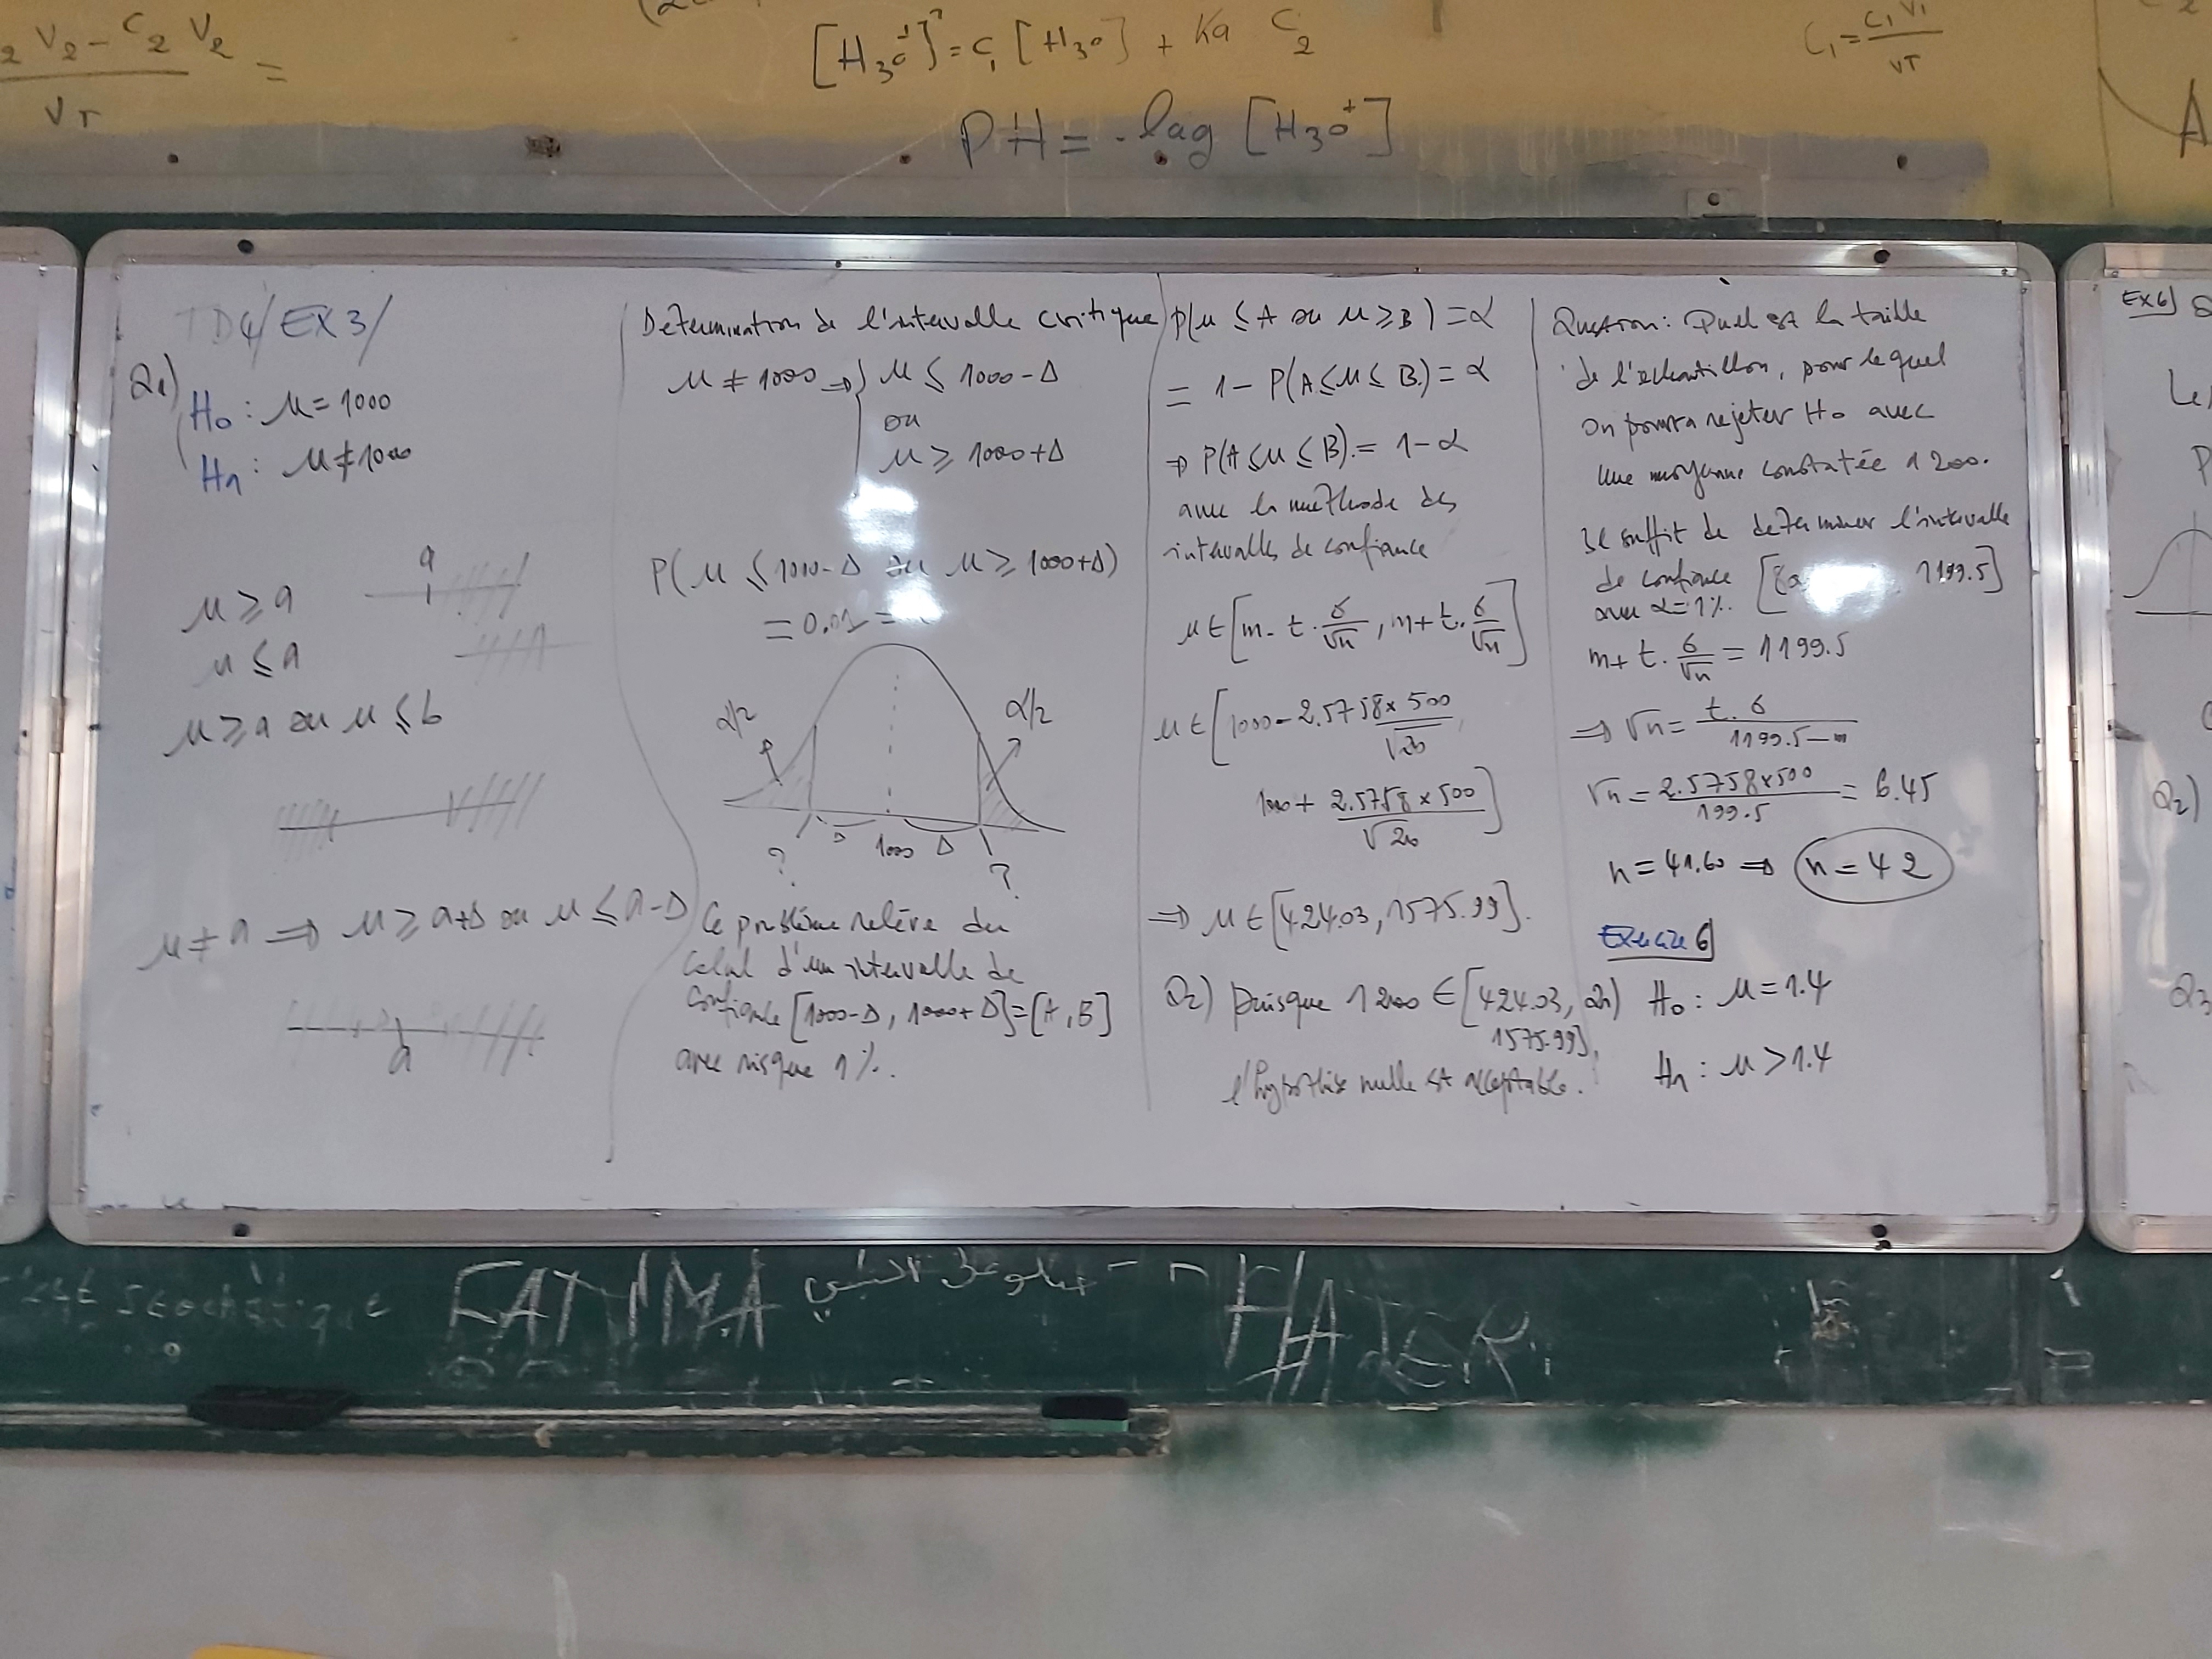 2 V2 - C2 V2
VT
=
[H3O+]² = C1 [H3O] + Ka C2
C1 = C1 V1
VT
PH = -lag [H3O+]
A
TD4/EX3/
Q1)
H0 : μ = 1000
H1 : μ ≠ 1000
μ ≥ a
a
μ ≤ a
μ ≥ a ou μ ≤ b
μ ≠ a ⇒ μ ≥ a+Δ ou μ ≤ a-Δ
a
Determination de l'intervalle critique
μ ≠ 1000 ⇒ { μ ≤ 1000 - Δ
ou
μ ≥ 1000 + Δ
P(μ ≤ 1000-Δ ou μ ≥ 1000+Δ)
= 0.01 =
α/2
α/2
Δ 1000 Δ
? ?
Ce problème relève du
calcul d'un intervalle de
confiance [1000-Δ, 1000+Δ] = [A, B]
avec risque 1%.
P(μ ≤ A ou μ ≥ B) = α
= 1 - P(A ≤ μ ≤ B) = α
⇒ P(A ≤ μ ≤ B) = 1 - α
avec la methode des
intervalles de confiance
μ ∈ [m - t . σ/√n , m + t . σ/√n]
μ ∈ [1000 - 2.5758 × 500
√20
1000 + 2.5758 × 500]
√20
⇒ μ ∈ [424.03, 1575.99].
Q2) Puisque 1200 ∈ [424.03,
1575.99],
l'hypothèse nulle est acceptable.
Question: Quel est la taille
de l'echantillon, pour lequel
on pourra rejeter H0 avec
une moyenne constatée 1200.
Il suffit de determiner l'intervalle
de confiance [80 1199.5]
avec α = 1%.
m + t . σ/√n = 1199.5
⇒ √n = t . σ
1199.5 - m
√n = 2.5758 × 500 = 6.45
199.5
n = 41.60 ⇒ n = 42
Exercice 6
Q1) H0 : μ = 1.4
H1 : μ > 1.4
EX6
Le
P
Q2)
Q3
Stochastique
FATIMA
HAJER